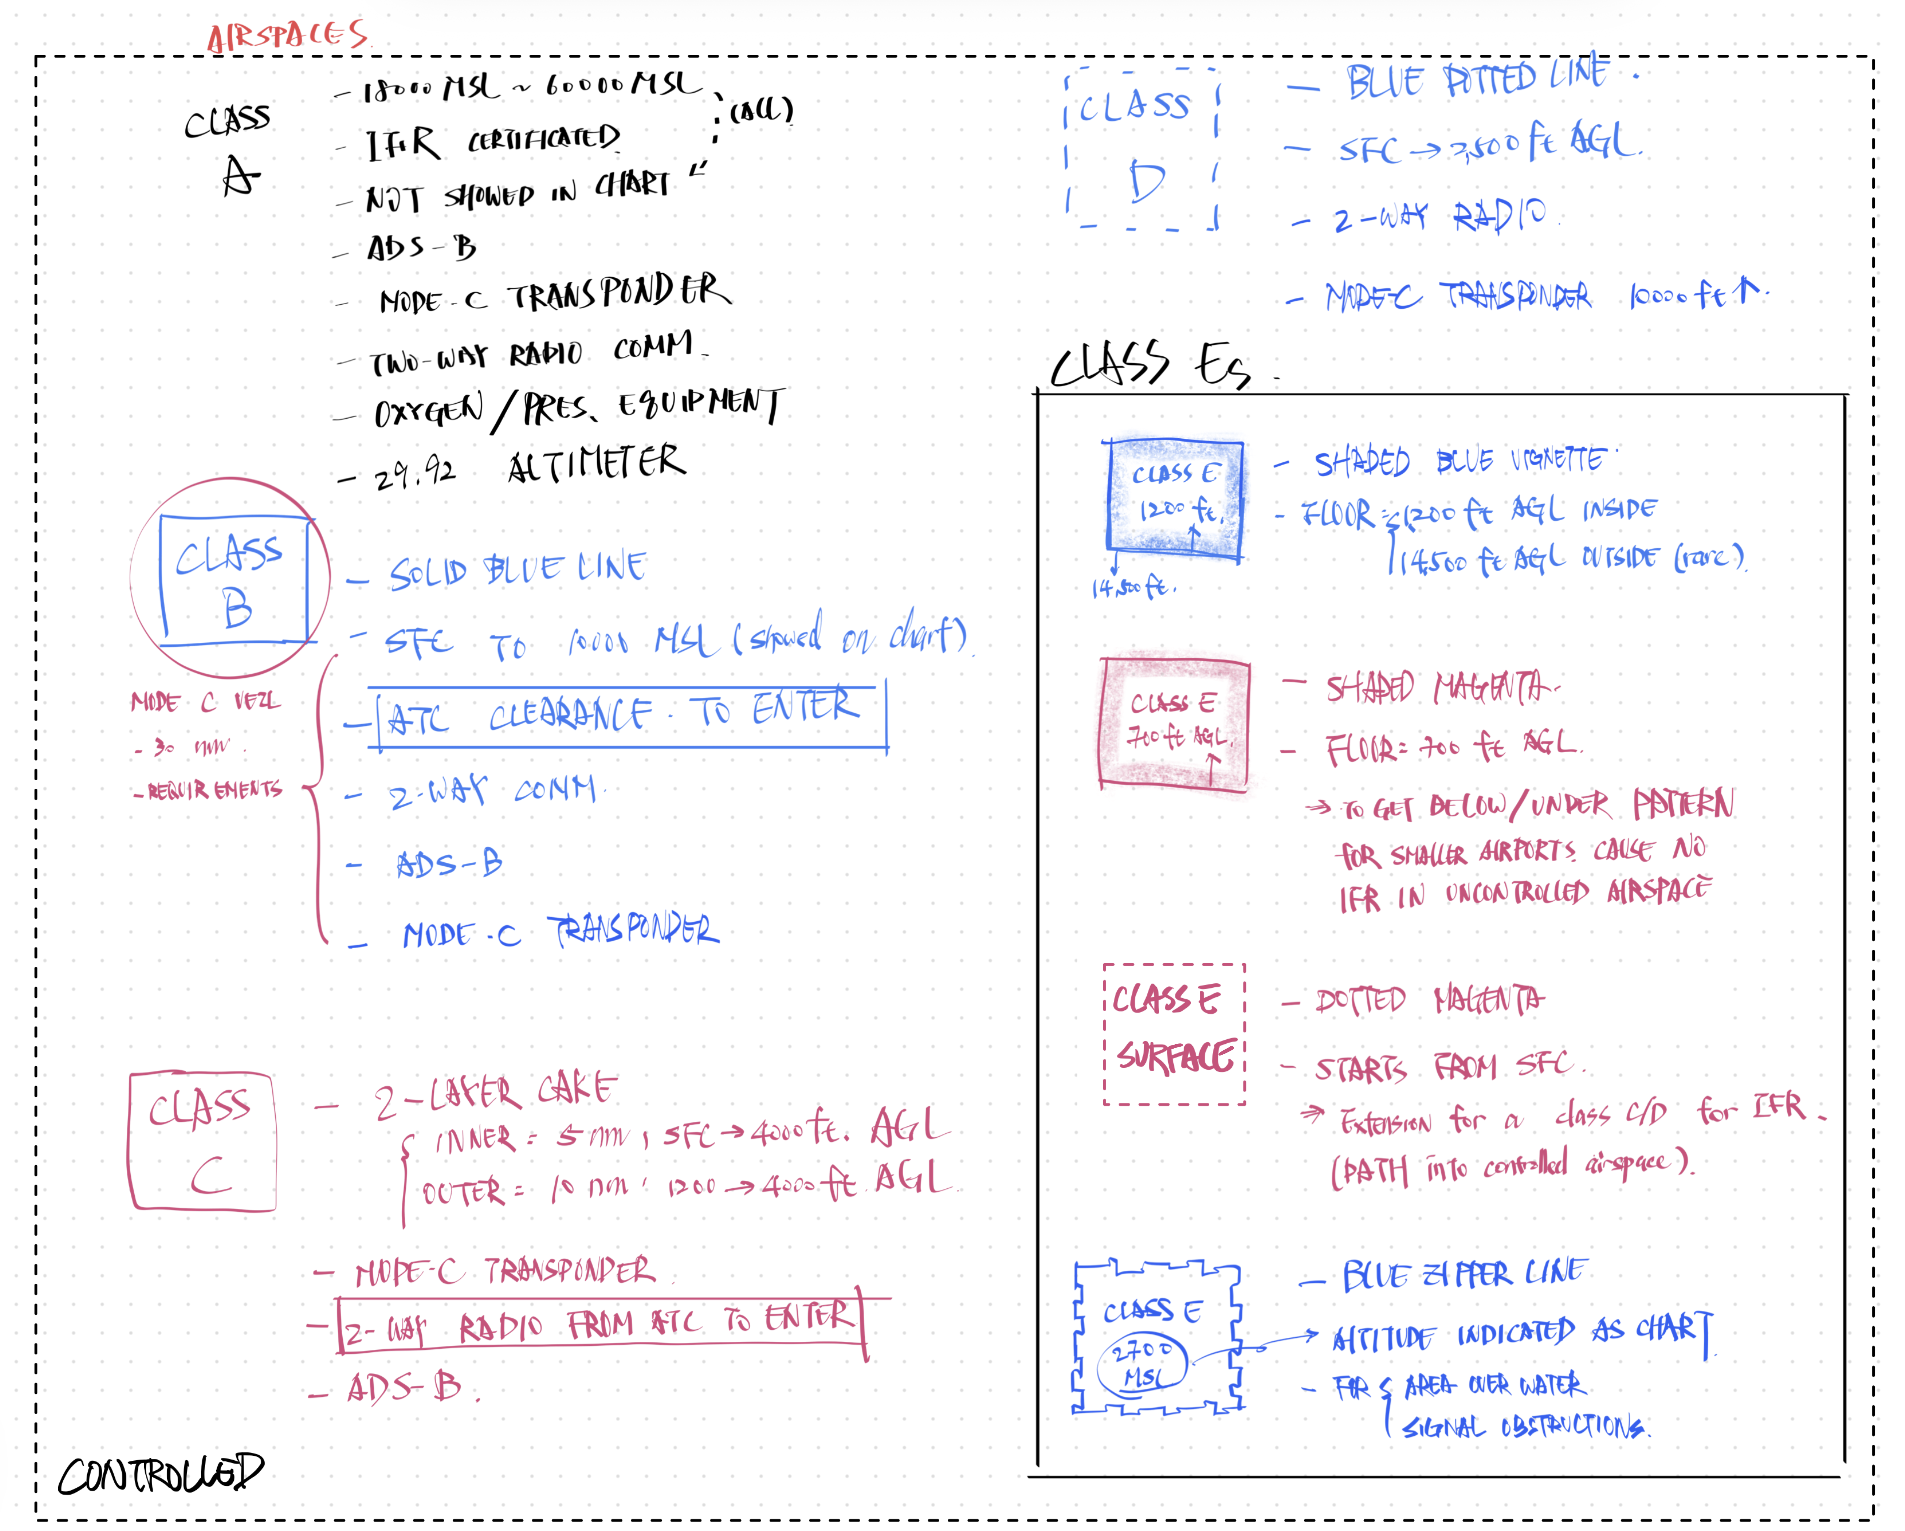 AIRSPACES
CLASS
A
- 18000 MSL ~ 60000 MSL
(ALL)
- IFR CERTIFICATED
- NOT SHOWED IN CHART
- ADS-B
- MODE-C TRANSPONDER
- TWO-WAY RADIO COMM.
- OXYGEN/PRES. EQUIPMENT
- 29.92 ALTIMETER
CLASS
B
- SOLID BLUE LINE
- SFC TO 10000 MSL (showed on chart).
- ATC CLEARANCE TO ENTER
- 2-WAY COMM.
- ADS-B
- MODE-C TRANSPONDER
MODE C VEIL
- 30 nm.
- REQUIREMENTS
CLASS
C
- 2-LAYER CAKE
INNER = 5 nm, SFC → 4000 ft. AGL
OUTER = 10 nm, 1200 → 4000 ft AGL.
- MODE-C TRANSPONDER.
- 2-WAY RADIO FROM ATC TO ENTER
- ADS-B.
CONTROLLED
CLASS
D
- BLUE DOTTED LINE.
- SFC → 2,500 ft AGL.
- 2-WAY RADIO.
- MODE-C TRANSPONDER 10000 ft ↑.
CLASS Es.
CLASS E
1200 ft.
14,500 ft.
- SHADED BLUE VIGNETTE.
- FLOOR = 1,200 ft AGL INSIDE
14,500 ft AGL OUTSIDE (rare).
CLASS E
700 ft AGL.
- SHADED MAGENTA.
- FLOOR = 700 ft AGL.
→ TO GET BELOW/UNDER PATTERN
FOR SMALLER AIRPORTS. CAUSE NO
IFR IN UNCONTROLLED AIRSPACE
CLASS E
SURFACE
- DOTTED MAGENTA
- STARTS FROM SFC.
→ Extension for a class C/D for IFR.
(PATH into controlled airspace).
CLASS E
2700
MSL
- BLUE ZIPPER LINE
→ ALTITUDE INDICATED AS CHART.
- FOR AREA OVER WATER
SIGNAL OBSTRUCTIONS.